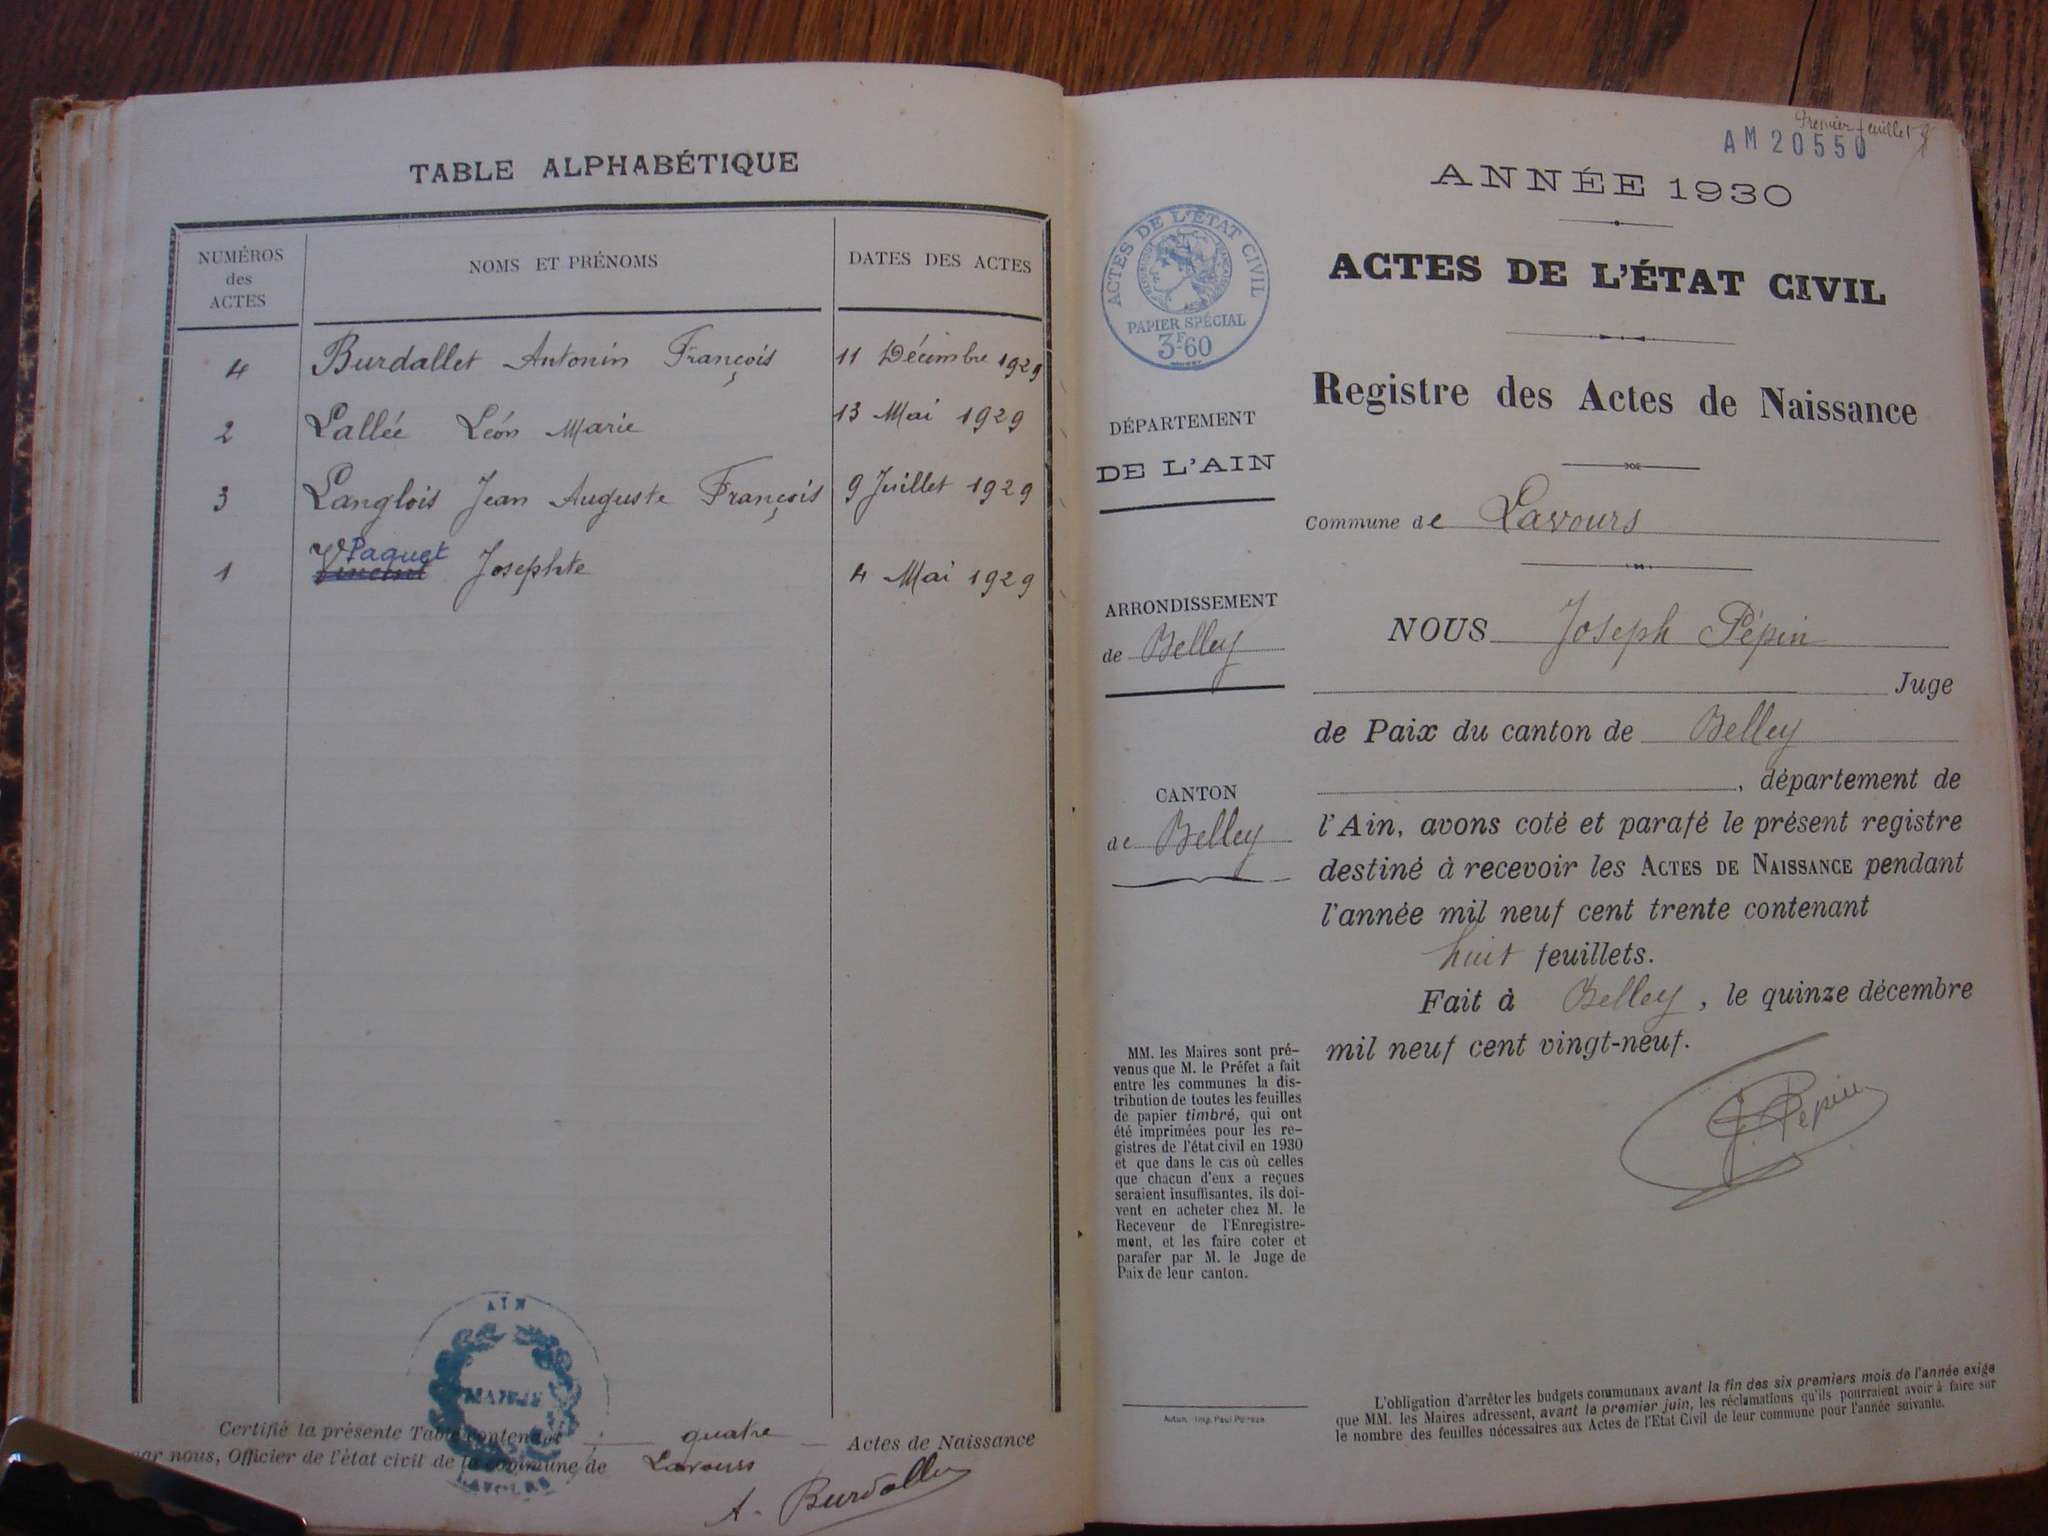 TABLE ALPHABÉTIQUE
NUMÉROS des ACTES NOMS ET PRÉNOMS DATES DES ACTES
4 Burdallet Antonin François 11 Décimbre 1929
2 Lallée Léon Marie 13 Mai 1929
3 Langlois Jean Auguste François 9 Juillet 1929
1 Vincent Paquet Josephte 4 Mai 1929
AIN
MAIRIE
LAVOURS
Certifié la présente Table contenant quatre Actes de Naissance
par nous, Officier de l'état civil de la commune de Lavours
A. Burdallet
Premier feuillet
AM 20550
ANNÉE 1930
ACTES DE L'ÉTAT CIVIL
Registre des Actes de Naissance
Commune de Lavours
NOUS Joseph Pépin
Juge
de Paix du canton de Belley
, département de
l'Ain, avons coté et parafé le présent registre
destiné à recevoir les ACTES DE NAISSANCE pendant
l'année mil neuf cent trente contenant
huit feuillets.
Fait à Belley, le quinze décembre
mil neuf cent vingt-neuf.
J. Pépin
ACTES DE L'ÉTAT CIVIL
PAPIER SPÉCIAL
3F60
DÉPARTEMENT
DE L'AIN
ARRONDISSEMENT
de Belley
CANTON
de Belley
MM. les Maires sont pré-
venus que M. le Préfet a fait
entre les communes la dis-
tribution de toutes les feuilles
de papier timbré, qui ont
été imprimées pour les re-
gistres de l'état civil en 1930
et que dans le cas où celles
que chacun d'eux a reçues
seraient insuffisantes, ils doi-
vent en acheter chez M. le
Receveur de l'Enregistre-
ment, et les faire coter et
parafer par M. le Juge de
Paix de leur canton.
Autun. Imp. Paul
L'obligation d'arrêter les budgets communaux avant la fin des six premiers mois de l'année exige
que MM. les Maires adressent, avant le premier juin, les réclamations qu'ils pourraient avoir à faire sur
le nombre des feuilles nécessaires aux Actes de l'Etat Civil de leur commune pour l'année suivante.